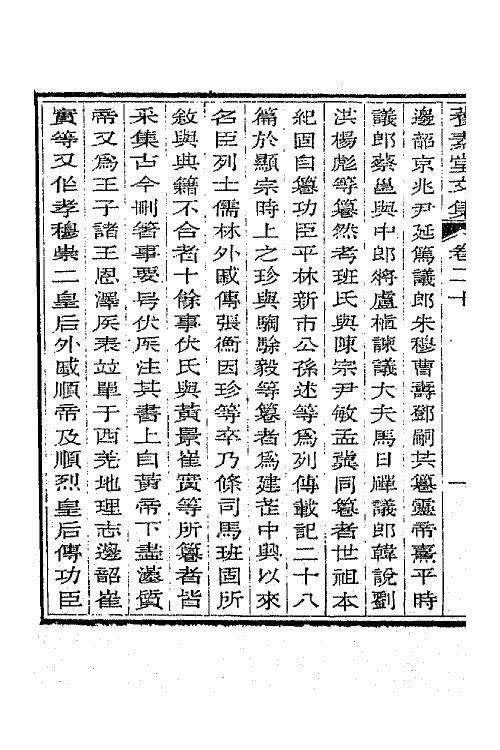 養素堂文集　卷二十　一
邊韶京兆尹延篤議郎朱穆曹壽鄧嗣共篹靈帝熹平時
議郎蔡邕與中郎將盧植諫議大夫馬日磾議郎韓說劉
洪楊彪等篹然考班氏與陳宗尹敏孟異同篹者世祖本
紀固自篹功臣平林新市公孫述等爲列傳載記二十八
篇於顯宗時上之珍與騊駼毅等篹者爲建武中興以來
名臣列士儒林外戚傳張衡因珍等卒乃條司馬班固所
敘與典籍不合者十餘事伏氏與黃景崔寔等所篹者皆
采集古今刪著事要号伏矦注其書上自黃帝下盡漢質
帝又爲王子諸王恩澤矦表竝單于西羌地理志邊韶崔
寔等又作孝穆崇二皇后外戚順帝及順烈皇后傳功臣